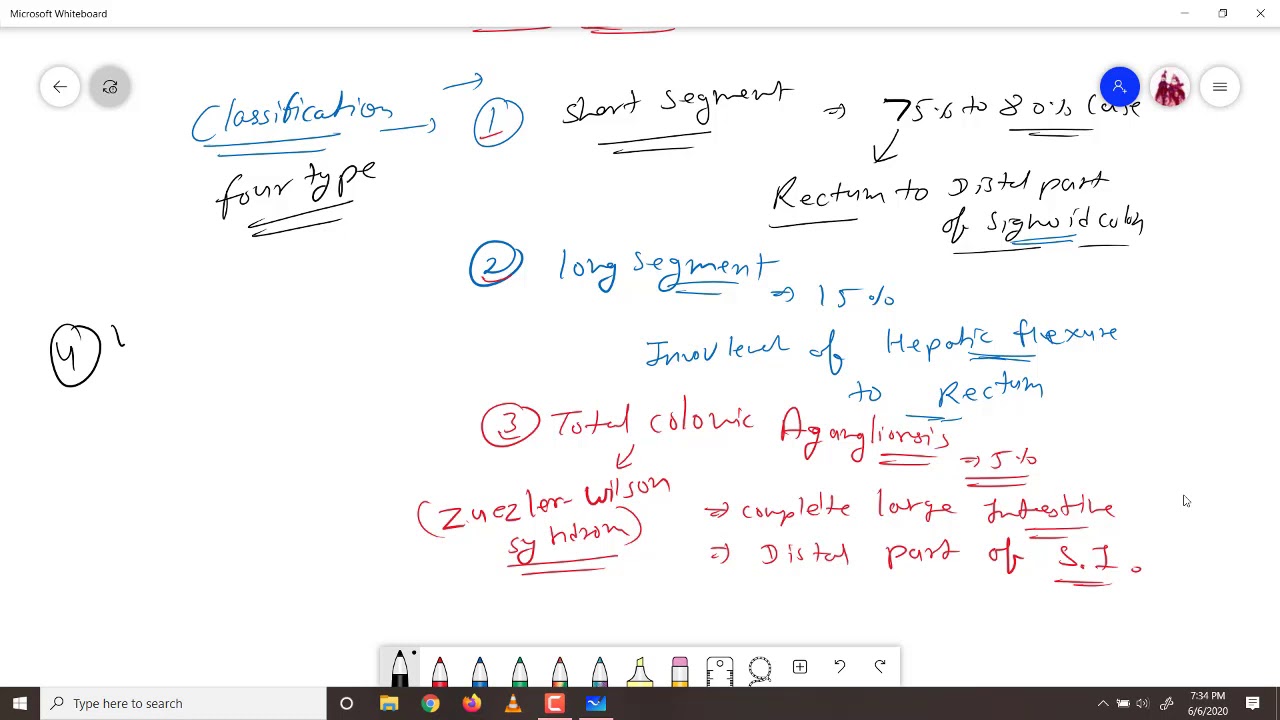 Microsoft Whiteboard
Classification
four type
1 short segment ⇒ 75% to 80% Case
Rectum to Distal part
of sigmoid colon
2 long segment
⇒ 15%
Involvevel of Hepatic flexure
to Rectum
3 Total colonic Aganglionsis
⇒ 5%
(Zuezler-wilson
syndrom)
⇒ complete large Intestine
⇒ Distal part of S.I.
4
Type here to search
7:34 PM
6/6/2020